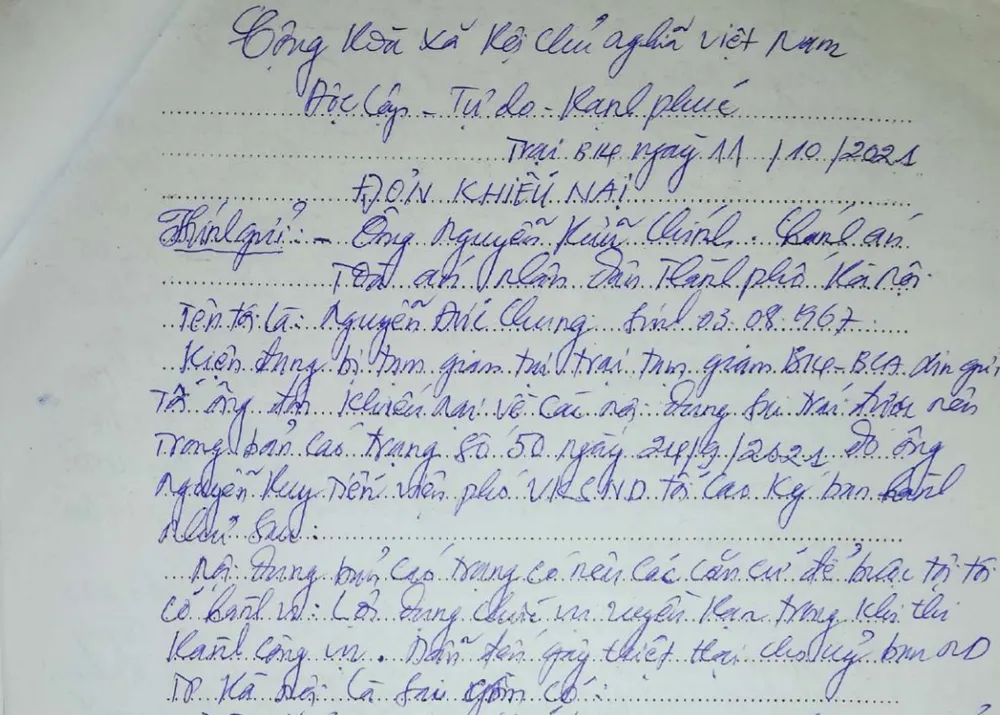 Cộng Hòa Xã Hội Chủ nghĩa Việt Nam
Độc lập - Tự do - Hạnh phúc
Trại B14 ngày 11/10/2021
ĐƠN KHIẾU NẠI
Kính gửi: - Ông Nguyễn Hữu Chính. Chánh án
Tòa án nhân dân Thành phố Hà nội.
Tên tôi là: Nguyễn Đức Chung sinh 03.08.1967.
Hiện đang bị tạm giam tại trại tạm giam B14-BCA. xin gửi
Tới ông đơn khiếu nại về các nội dung sai trái được nêu
Trong bản cáo trạng số 50 ngày 24/9/2021 do ông
Nguyễn Huy Tiến viện phó VKSND tối cao ký ban hành
Như sau:
Nội dung bản cáo trạng có nêu các căn cứ để buộc tội tôi
có hành vi: Lợi dụng chức vụ quyền Hạn trong khi thi
Hành công vụ. Dẫn đến gây thiệt hại cho uỷ ban ND
TP Hà nội là sai gồm có: